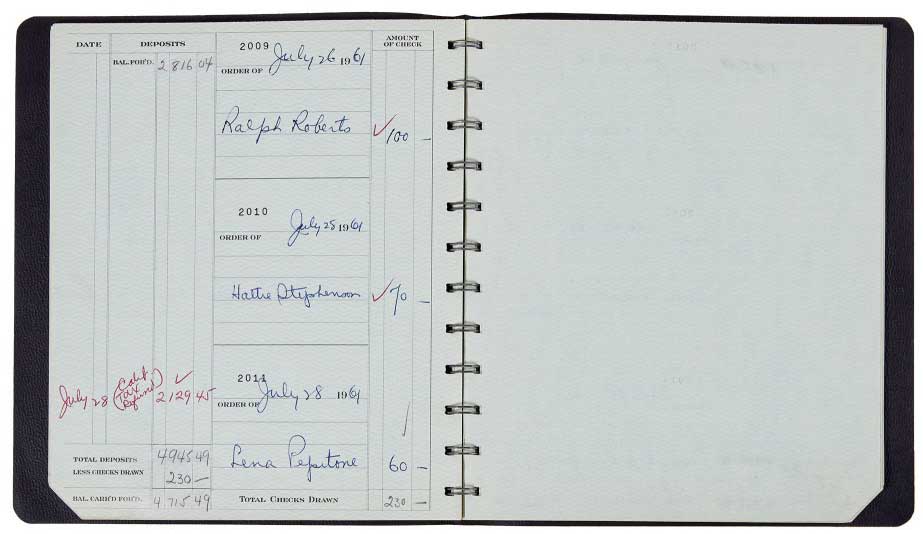 DATE DEPOSITS AMOUNT OF CHECK
BAL. FOR'D. 2816 04
2009 July 26 1961
ORDER OF
Ralph Roberts ✓ 100 —
2010 July 25 1961
ORDER OF
Hattie Stephenson ✓ 70 —
July 28 (Calif Tax Refund) ✓ 2129 45
2011 July 28 1961
ORDER OF
Lena Pepitone 60 —
TOTAL DEPOSITS 4945 49
LESS CHECKS DRAWN 230 —
BAL. CAR'D FOR'D. 4,715 49 TOTAL CHECKS DRAWN 230 —